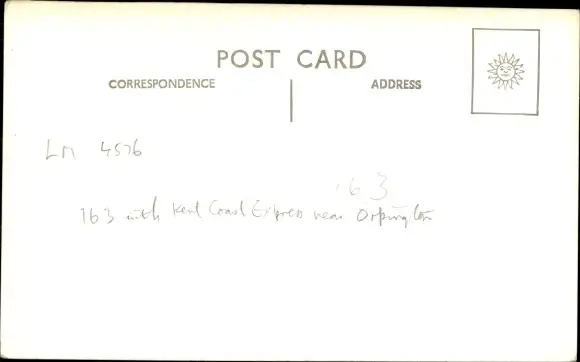 POST CARD
CORRESPONDENCE ADDRESS
LM 4576
63
163 with Kent Coast Express near Orpington